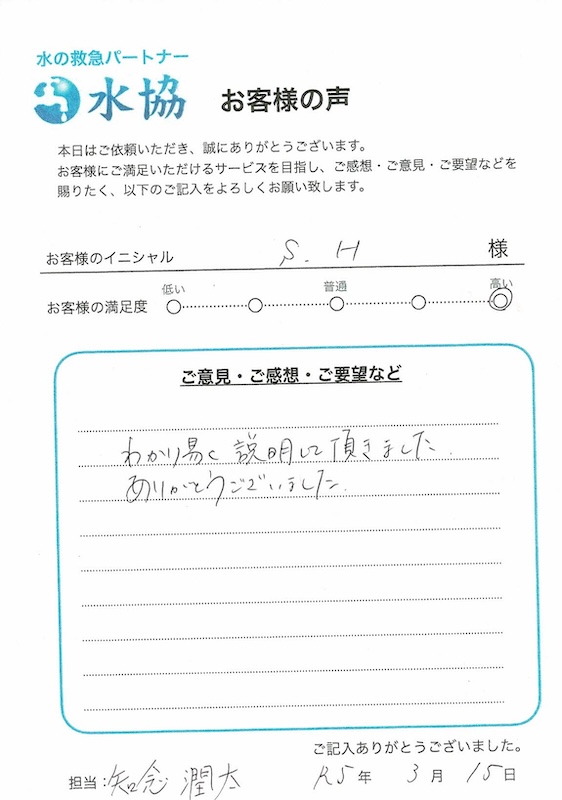 水の救急パートナー
水協 お客様の声
本日はご依頼いただき、誠にありがとうございます。
お客様にご満足いただけるサービスを目指し、ご感想・ご意見・ご要望などを
賜りたく、以下のご記入をよろしくお願い致します。
お客様のイニシャル S. H 様
低い 普通 高い
お客様の満足度
ご意見・ご感想・ご要望など
わかり易く説明して頂きました.
ありがとうございました.
ご記入ありがとうございました。
担当:知念 潤太 R5年 3月 15日